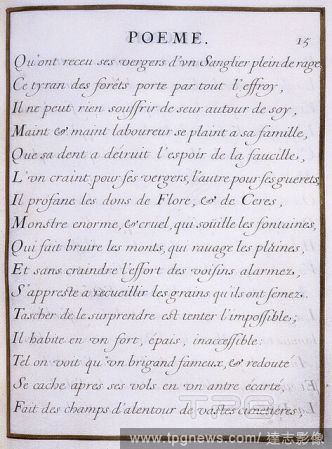 POEME. 15
Qu'ont receu ses vergers d'vn Sanglier plein de rage
Ce tyran des forêts porte par tout l'effroy,
Il ne peut rien souffrir de seur autour de soy,
Maint & maint laboureur se plaint a sa famille,
Que sa dent a détruit l'espoir de la faucille,
L'vn craint pour ses vergers, l'autre pour ses guerets,
Il profane les dons de Flore, & de Ceres,
Monstre enorme, & cruel, qui soüille les fontaines,
Qui fait bruire les monts, qui rauage les plaines,
Et sans craindre l'effort des voisins alarmez,
S'appreste a recueillir les grains qu'ils ont semez.
Tascher de le surprendre est tenter l'impossible;
Il habite en vn fort, épais, inaccessible:
Tel on voit qu'vn brigand fameux, & redouté
Se cache apres ses vols en vn antre écarté,
Fait des champs d'alentour de vastes cimetieres,
TPG
www.tpgnews.com/達志影像